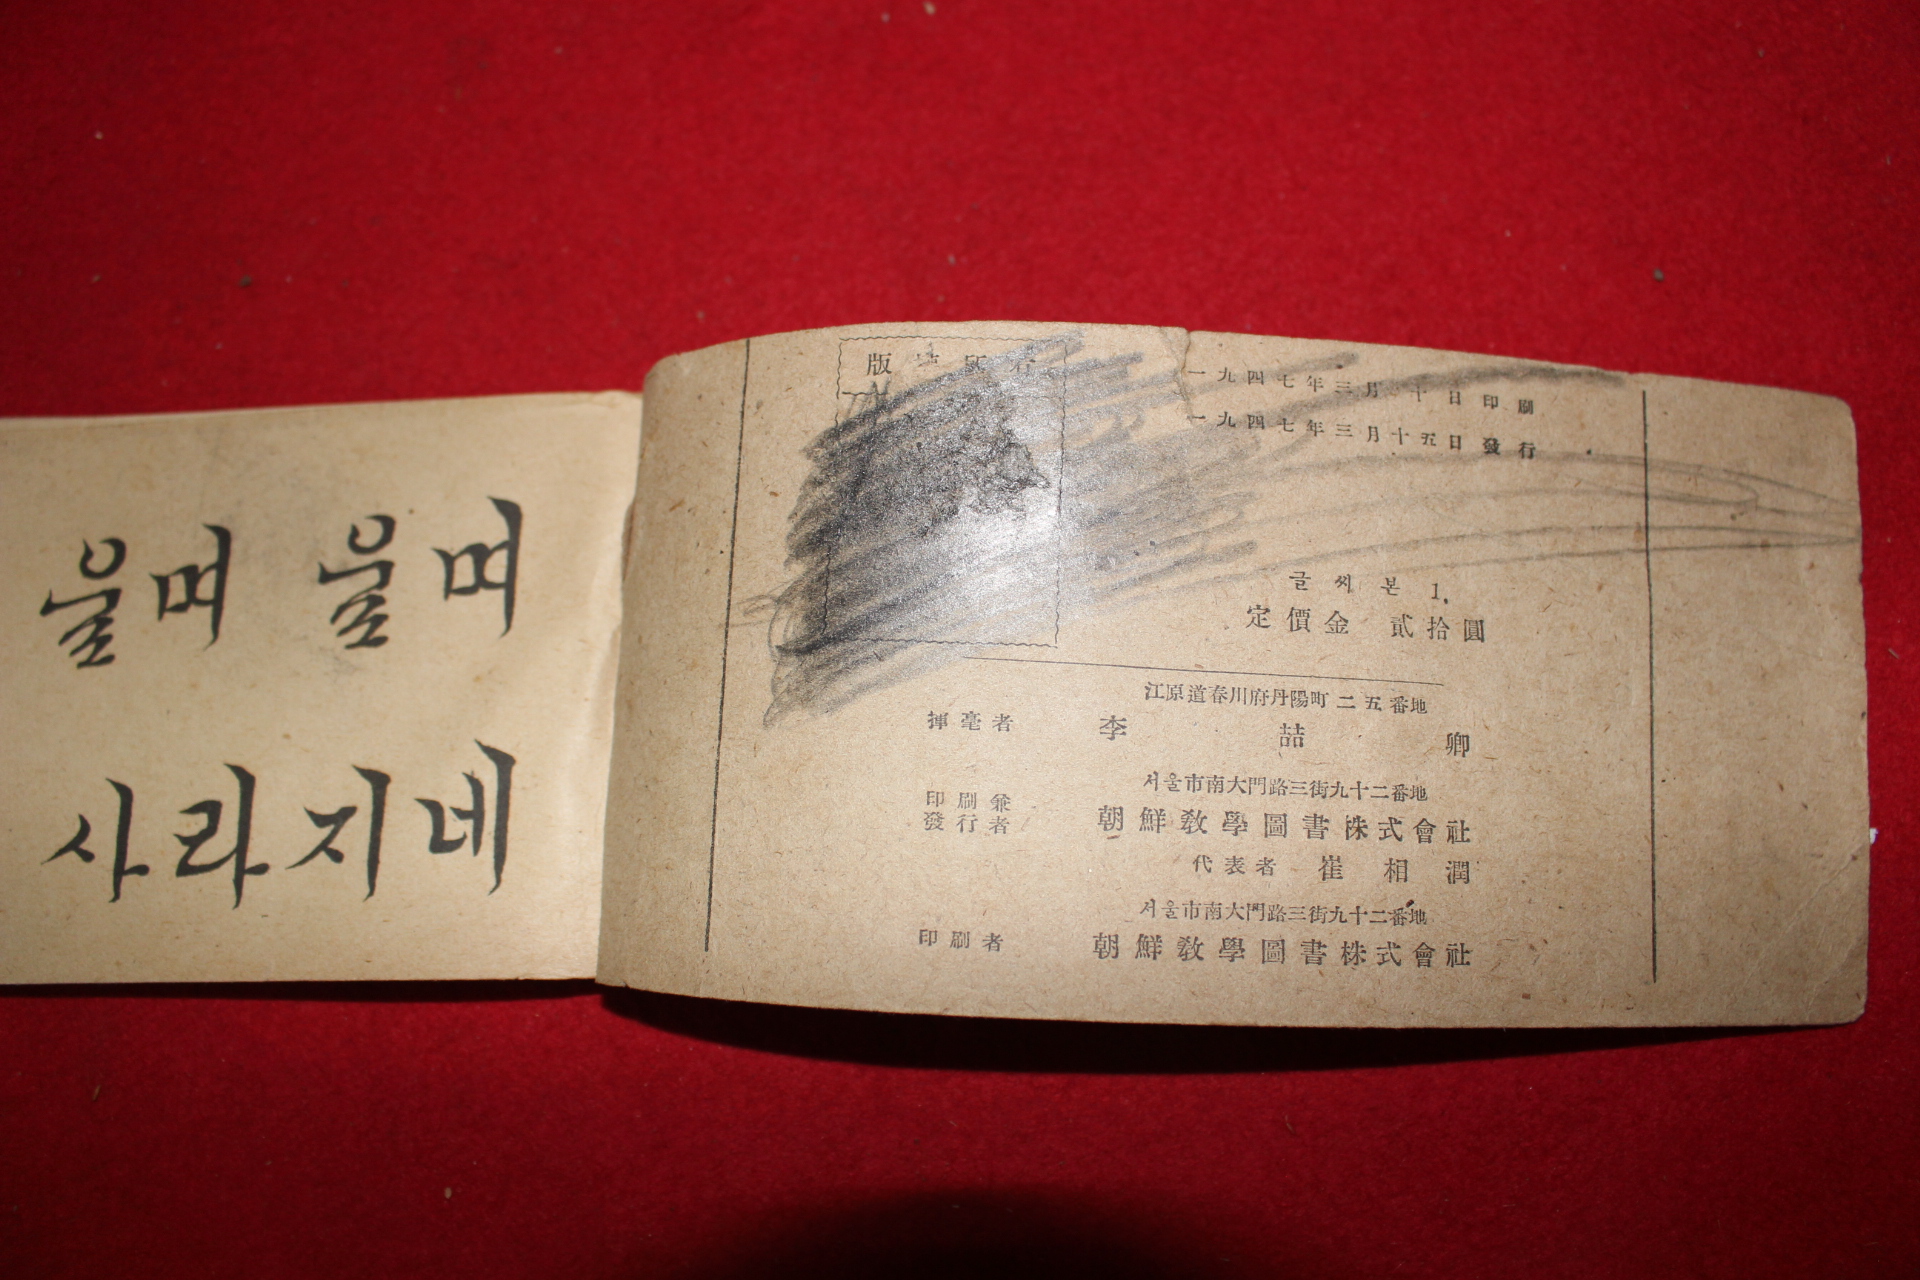 울며 울며
사라지네
版權所有
一九四七年三月十日印刷
一九四七年三月十五日發行
글씨본 1.
定價金 貳拾圓
江原道春川府丹陽町二五番地
揮毫者 李喆卿
서울市南大門路三街九十二番地
印刷兼
發行者 朝鮮敎學圖書株式會社
代表者 崔相潤
서울市南大門路三街九十二番地
印刷者 朝鮮敎學圖書株式會社